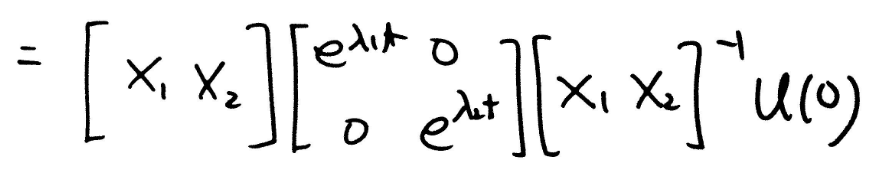 = [ x₁ x₂ ] [ e^{λ₁t} 0 ; 0 e^{λ₂t} ] [ x₁ x₂ ]⁻¹ u(0)